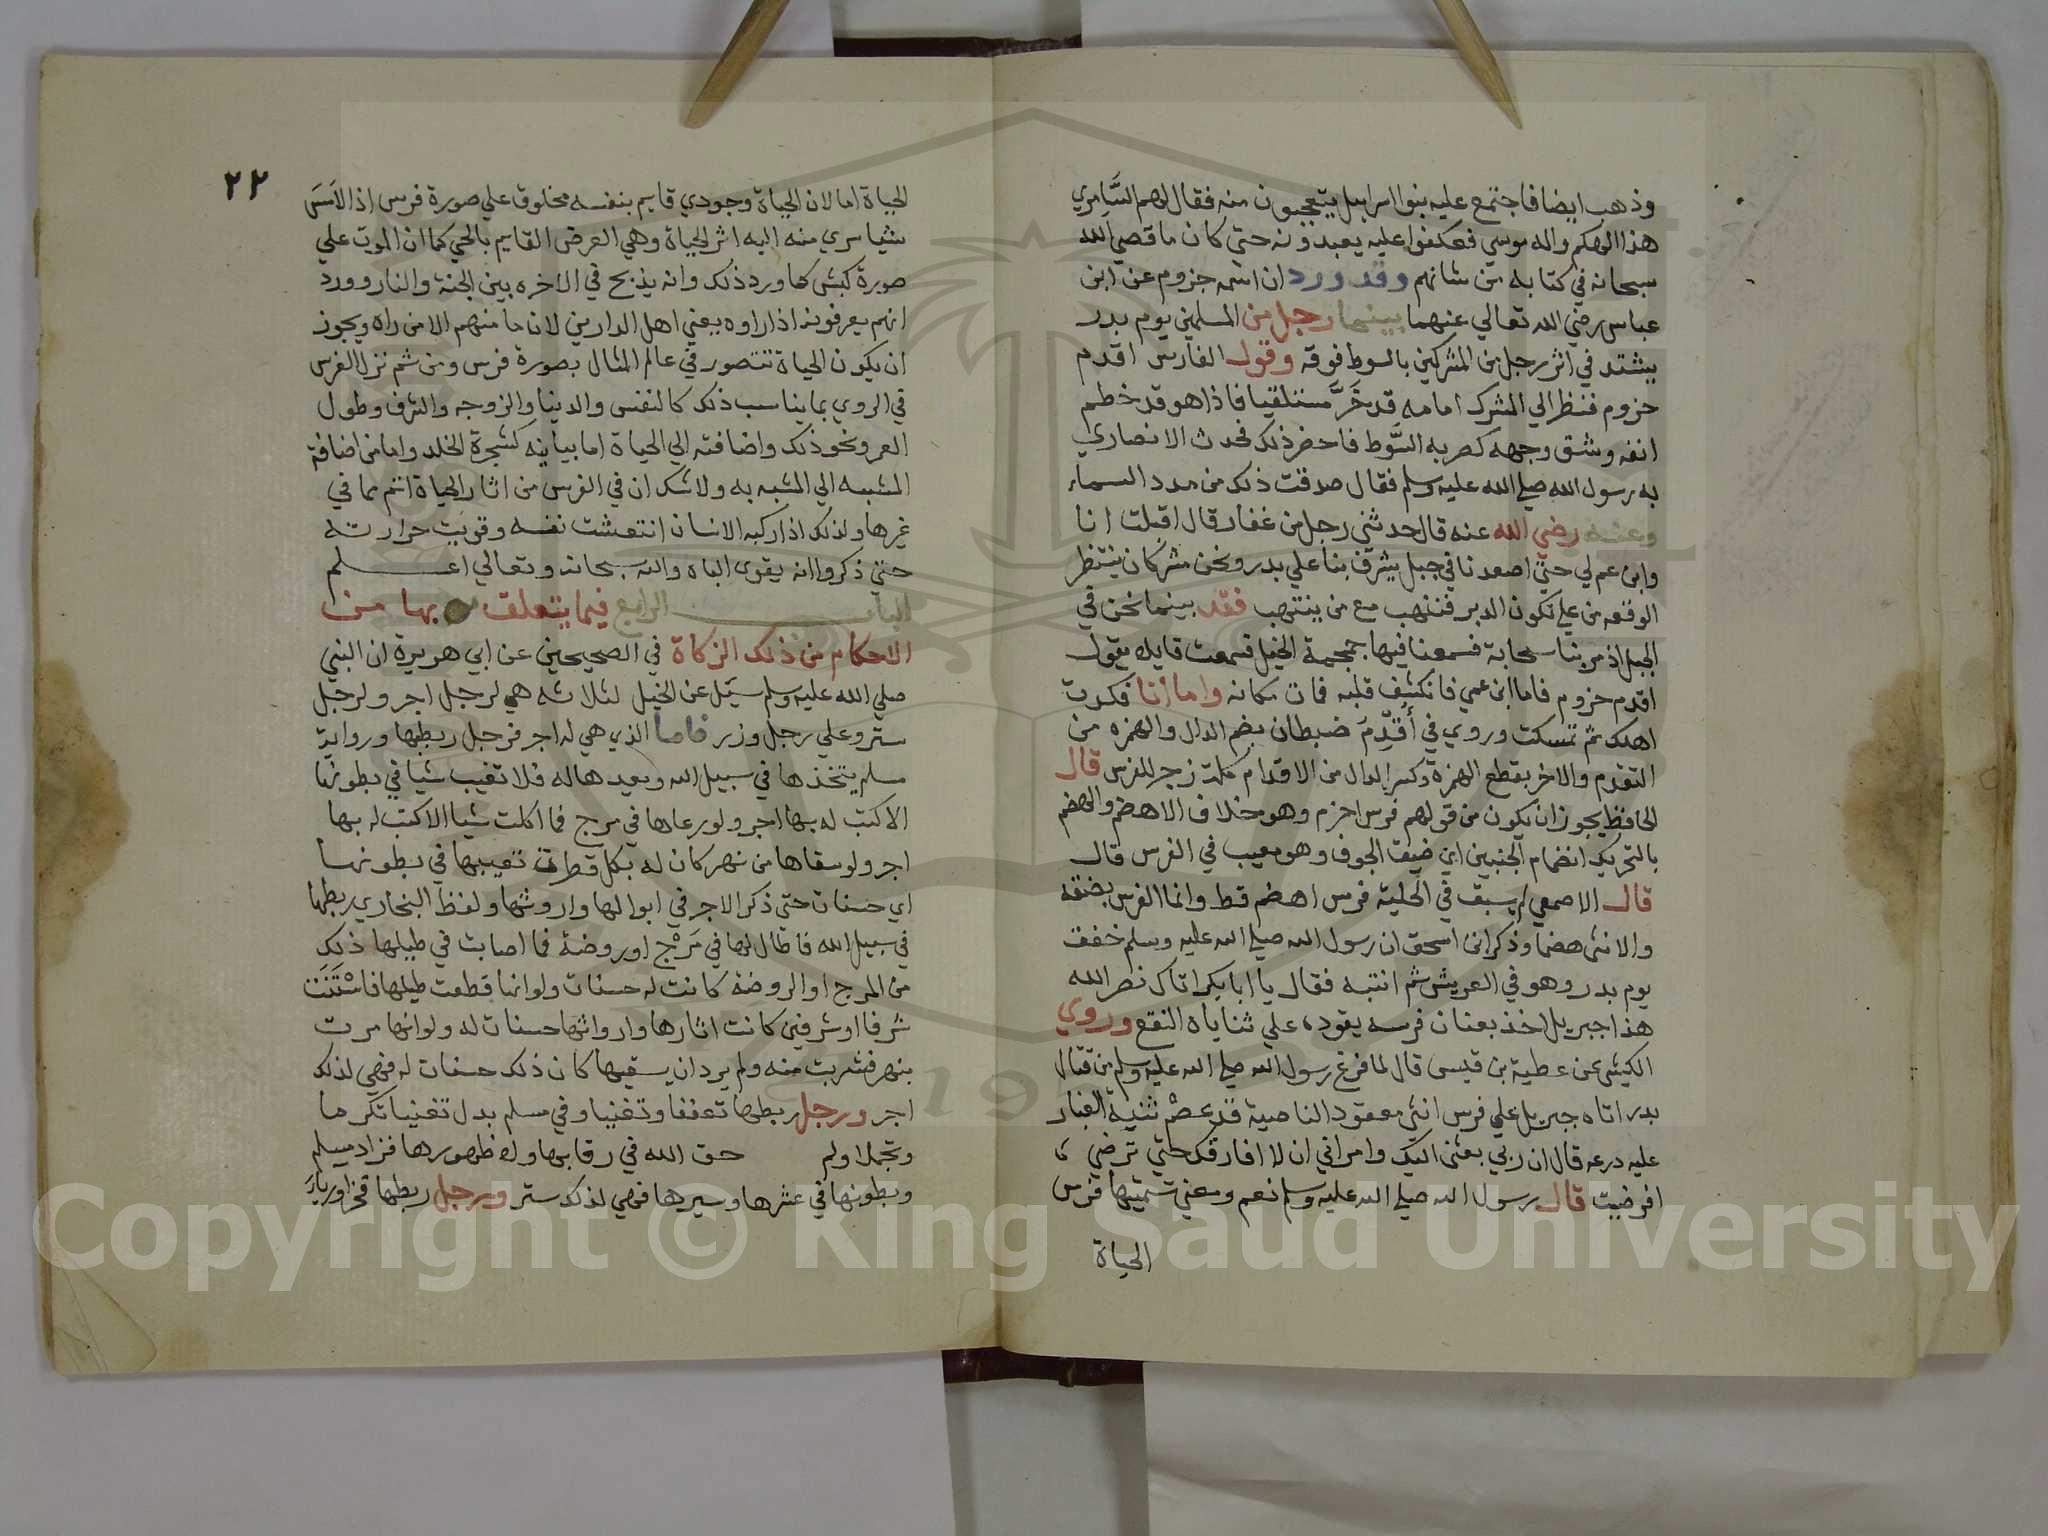 وذهب ايضا فاجتمع عليه بنوا اسراييل يتعجبون منه فقال لهم السَّامري
هذا الهكم واله موسي فعكفوا عليه يعبدونه حتي كان ما قصي الله
سبحانه في كتابه من شانهم وقد ورد ان اسمه حزوم عن ابن
عباس رضي الله تعالي عنهما بينما رجل من المسلمين يوم بدر
يشتد في اثر رجل من المشركين بالسوط فوقه وقول الفارس اقدم
حزوم فنظر الي المشرك امامه قد خَرَّ مستلقيا فاذا هو قد خطم
انفه وشق وجهه كضربه السَّوط فاحضر ذلك فحدث الانصاري
به رسول الله صلي الله عليه وسلم فقال صدقت ذلك من مدد السماء
وعنه رضي الله عنه قال حدثني رجل من غفار قال اقبلت انا
وابن عم لي حتي اصعدنا في جبل يشرف بنا علي بدر ونحن مشركان ينتظر
الوقعه من علي تكون الدبر فننهب مع من ينتهب فقد بينما نحن في
الجبل اذ مر بنا سحابة فسمعنا فيها حمحمة الخيل فسمعت قايلا يقول
اقدم حزوم فاما ابن عمي فانكشف قلبه فمات مكانه واما انا فكدت
اهلك ثم تمسكت وروي في أَقدِمَ ضبطان بضم الدال والهمزه من
التقدم والاخر بقطع الهمزة وكسر الدال من الاقدام كلمة زجر للفرس قال
الحافظ يجوز ان يكون من قولهم فرس اجزم وهو خلاف الاهضم والهضم
بالتحريك انضمام الجنبين اي ضيق الجوف وهو معيب في الفرس قال
قال الاصمعي لم يسبق في الحلية فرس اهضم قط وانما الفرس بضنقه
والانثى هضما وذكر ابن اسحق ان رسول الله صلي الله عليه وسلم خفق
يوم بدر وهو في العريش ثم انتبه فقال يا ابا بكر اتاك نصر الله
هذا جبريل اخذ بعنان فرسه يقوده علي ثناياه النقع وروي
عن عطية بن قيس قال لما فرغ رسول الله صلي الله عليه وسلم من قتال
بدر اتاه جبريل علي فرس انثى معقود الناصية قد عصم ثنية الغبار
عليه درعه قال ان ربي بعثني اليك وامرني ان لا افارقك حتي ترضي
افرضيت قال رسول الله صلي الله عليه وسلم نعم ومعني تسميتها فرس
الحياة
٢٢
الحياة اما لان الحياة وجودي قايم بنفسه مخلوق علي صورة فرس اذا لامَسَ
شيا سري منه اليه اثر الحياة وهي العرض القايم بالحي كما ان الموت علي
صورة كبش كما ورد ذلك وانه يذبح في الاخره بين الجنة والنار وورد
انهم يعرفونه اذا راوه يعني اهل الدارين لان ما منهم الا من راه ويجوز
ان يكون الحياة تتصور في عالم المثال بصورة فرس ومن ثم نزل الفرس
في الروي بما يناسب ذلك كالنفس والدنيا والزوجه والشرف وطول
العمر ونحو ذلك واضافته الي الحياة اما بيانيه كشجرة الخلد واما من اضافة
المشبه الي المشبه به ولا شك ان في الفرس من اثار الحياة اتم مما في
غيرها ولذلك اذا ركبه الانسان انتعشت نفسه وقويت حرارته
حتي ذكروا انه يقوى الباه والله سبحانه وتعالي اعلم
الباب الرابع فيما يتعلق بها من
الاحكام من ذلك الزكاة في الصحيحين عن ابي هريرة ان النبي
صلي الله عليه وسلم سيل عن الخيل لثلاثه هي لرجل اجر ولرجل
ستر وعلي رجل وزر فاما الذي هي له اجر فرجل ربطها ورواية
مسلم يتخذها في سبيل الله ويعدها له فلا تغيب شيا في بطونها
الا كتب له بها اجر ولو رعاها في مرج فما اكلت شيا الا كتب له بها
اجر ولو سقاها من نهر كان له بكل قطرة تغيبها في بطونها
اي حسنات حتي ذكر الاجر في ابوالها واروثها ولفظ البخاري ربطها
في سبيل الله فاطال لها في مَرْج او روضة فما اصابت في طيلها ذلك
من المرج او الروضة كانت له حسنات ولو انها قطعت طيلها فاسْتَنَت
شرفا او شرفين كانت اثارها واروائها حسنات له ولو انها مرت
بنهر فشربت منه ولم يرد ان يسقيها كان ذلك حسنات له فهي لذلك
اجر ورجل ربطها تعففا وتغنيا وفي مسلم بدل تغنيا تكرما
وتجملا ولم حق الله في رقابها ولا ظهورها فزاد مسلم
وبطونها في عشرها وسيرها فهي لذلك ستر ورجل ربطها فخرا ورياء
Copyright © King Saud University